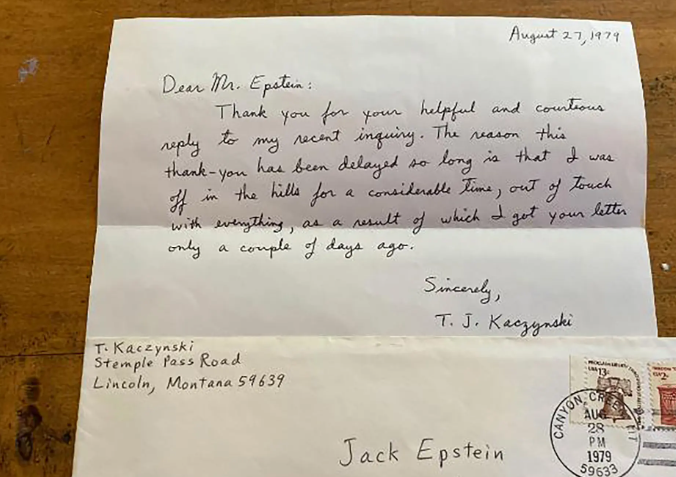 August 27, 1979
Dear Mr. Epstein:
Thank you for your helpful and courteous
reply to my recent inquiry. The reason this
thank-you has been delayed so long is that I was
off in the hills for a considerable time, out of touch
with everything, as a result of which I got your letter
only a couple of days ago.
Sincerely,
T. J. Kaczynski
T. Kaczynski
Stemple Pass Road
Lincoln, Montana 59639
Jack Epstein
USA 13c
CANYON CREEK MT
AUG
28
PM
1979
59633